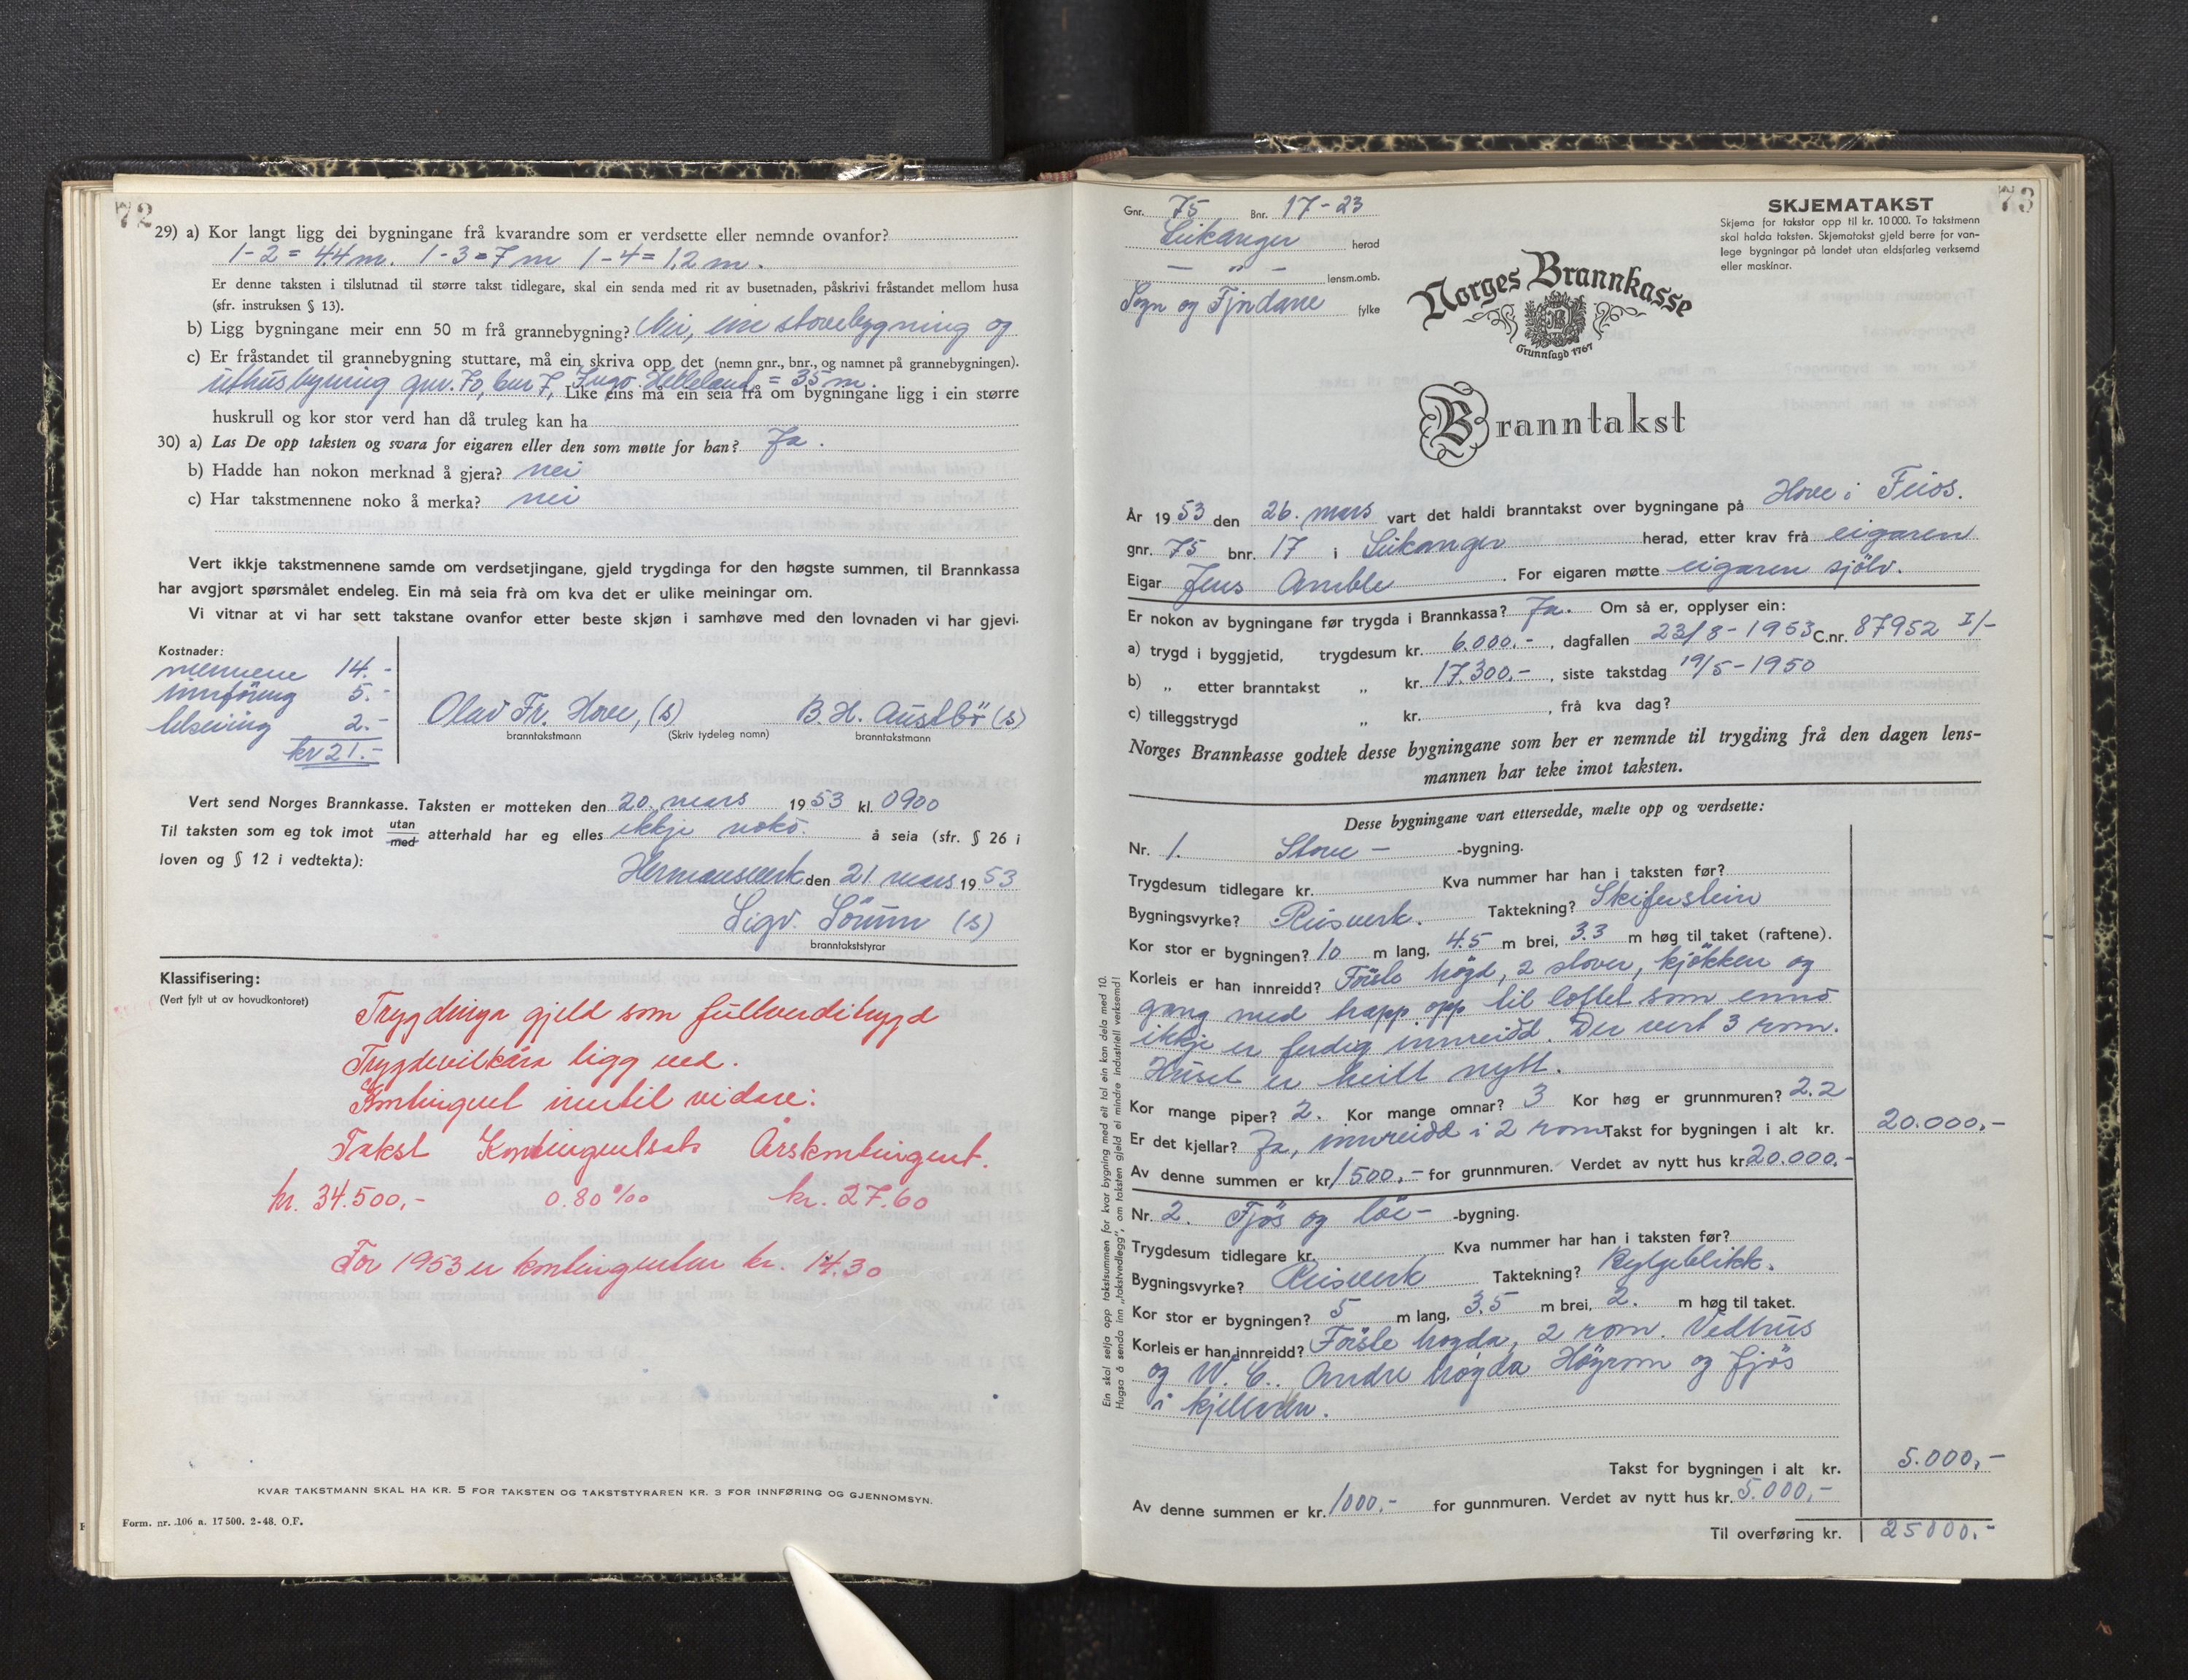 72
29) a) Kor langt ligg dei bygningane frå kvarandre som er verdsette eller nemnde ovanfor?
1-2 = 44 m. 1-3 = 7 m 1-4 = 1,2 m.
Er denne taksten i tilslutnad til større takst tidlegare, skal ein senda med rit av busetnaden, påskrivi fråstandet mellom husa
(sfr. instruksen § 13).
b) Ligg bygningane meir enn 50 m frå grannebygning? Nei, ein stovebygning og
c) Er fråstandet til grannebygning stuttare, må ein skriva opp det (nemn gnr., bnr., og namnet på grannebygningen).
uthusbygning gnr. 70, bnr 7, Helleland = 35 m. Like eins må ein seia frå om bygningane ligg i ein større
huskrull og kor stor verd han då truleg kan ha
30) a) Las De opp taksten og svara for eigaren eller den som møtte for han? Ja.
b) Hadde han nokon merknad å gjera? nei
c) Har takstmennene noko å merka? nei
Vert ikkje takstmennene samde om verdsetjingane, gjeld trygdinga for den høgste summen, til Brannkassa
har avgjort spørsmålet endeleg. Ein må seia frå om kva det er ulike meiningar om.
Vi vitnar at vi har sett takstane ovanfor etter beste skjøn i samhøve med den lovnaden vi har gjevi.
Kostnader:
mennene 14.-
innföring 5.-
2.-
kr 21.-
Olav Fr. Hove, (s) B. H. Austbö (s)
branntakstmann (Skriv tydeleg namn) branntakstmann
Vert send Norges Brannkasse. Taksten er motteken den 20. mars 1953 kl. 0900
Til taksten som eg tok imot utan/med atterhald har eg elles ikkje noko. å seia (sfr. § 26 i
loven og § 12 i vedtekta):
Hermansverk den 21. mars 1953
Sigv. Sörum (s)
branntakststyrar
Klassifisering:
(Vert fylt ut av hovudkontoret)
Trygdinga gjeld som fullverditrygd
Trygdevilkåra ligg ved.
Kontingent inntil vidare:
Takst Kontingentsats Årskontingent.
kr. 34.500,- 0.80 ‰ kr. 27.60
For 1953 er kontingenten kr. 14.30
KVAR TAKSTMANN SKAL HA KR. 5 FOR TAKSTEN OG TAKSTSTYRAREN KR. 3 FOR INNFØRING OG GJENNOMSYN.
Form. nr. 106 a. 17 500. 2-48. O.F.
73
Gnr. 75 Bnr. 17-23
Leikanger herad
- " - lensm.omb.
Sogn og Fjordane fylke
SKJEMATAKST
Skjema for takstar opp til kr. 10 000. To takstmenn
skal halda taksten. Skjematakst gjeld berre for van-
lege bygningar på landet utan eldsfarleg verksemd
eller maskinar.
Norges Brannkasse
Grunnlagd 1767
Branntakst
År 1953 den 26. mars vart det haldi branntakst over bygningane på Hove i Feios.
gnr. 75 bnr. 17 i Leikanger herad, etter krav frå eigaren
Eigar Jens Amble. For eigaren møtte eigaren sjölv.
Er nokon av bygningane før trygda i Brannkassa? Ja. Om så er, opplyser ein:
a) trygd i byggjetid, trygdesum kr. 6.000.-, dagfallen 23/8-1953 C.nr. 87952 I/-
b) „ etter branntakst „ kr. 17.300,-, siste takstdag 19/5-1950
c) tilleggstrygd „ kr. , frå kva dag?
Norges Brannkasse godtek desse bygningane som her er nemnde til trygding frå den dagen lens-
mannen har teke imot taksten.
Desse bygningane vart ettersedde, mælte opp og verdsette:
Nr. 1. Stove- -bygning.
Trygdesum tidlegare kr. Kva nummer har han i taksten før?
Bygningsvyrke? Reisverk. Taktekning? Skiferstein
Kor stor er bygningen? 10 m lang, 4.5 m brei, 3.3 m høg til taket (raftene).
Korleis er han innreidd? Förste högd, 2 stover, kjökken og
gang med trapp opp til loftet som ennå
ikkje er ferdig innreidd. Der vert 3 rom.
Huset er heilt nytt.
Kor mange piper? 2. Kor mange omnar? 3 Kor høg er grunnmuren? 2.2
Er det kjellar? Ja, innreidd i 2 rom Takst for bygningen i alt kr. 20.000,-
Av denne summen er kr 1500,- for grunnmuren. Verdet av nytt hus kr 20.000.-
Nr. 2. Fjös og löe- -bygning.
Trygdesum tidlegare kr. Kva nummer har han i taksten før?
Bygningsvyrke? Reisverk Taktekning? Bylgjeblikk.
Kor stor er bygningen? 5 m lang, 3.5 m brei, 2. m høg til taket.
Korleis er han innreidd? Förste högda, 2 rom. Vedhus
og W. C.. Andre högda Höyrom og fjös
i kjellaren.
Takst for bygningen i alt kr. 5.000,-
Av denne summen er kr. 1000,- for gunnmuren. Verdet av nytt hus kr. 5.000,-
Til overføring kr. 25000.-
Ein skal setja opp takstsummen for kvar bygning med eit tal ein kan dela med 10.
Hugsa å senda inn „takstvedlegg", om taksten gjeld ei mindre industriell verksemd!